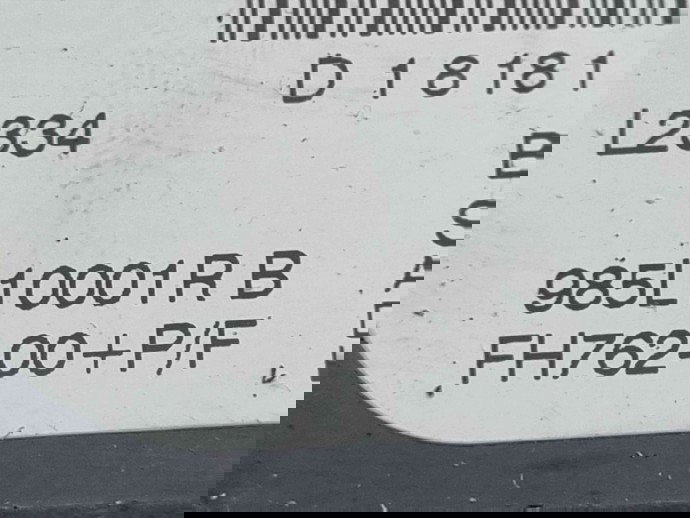 D18181
L2334
985L10001RB
FH762-00+P/F